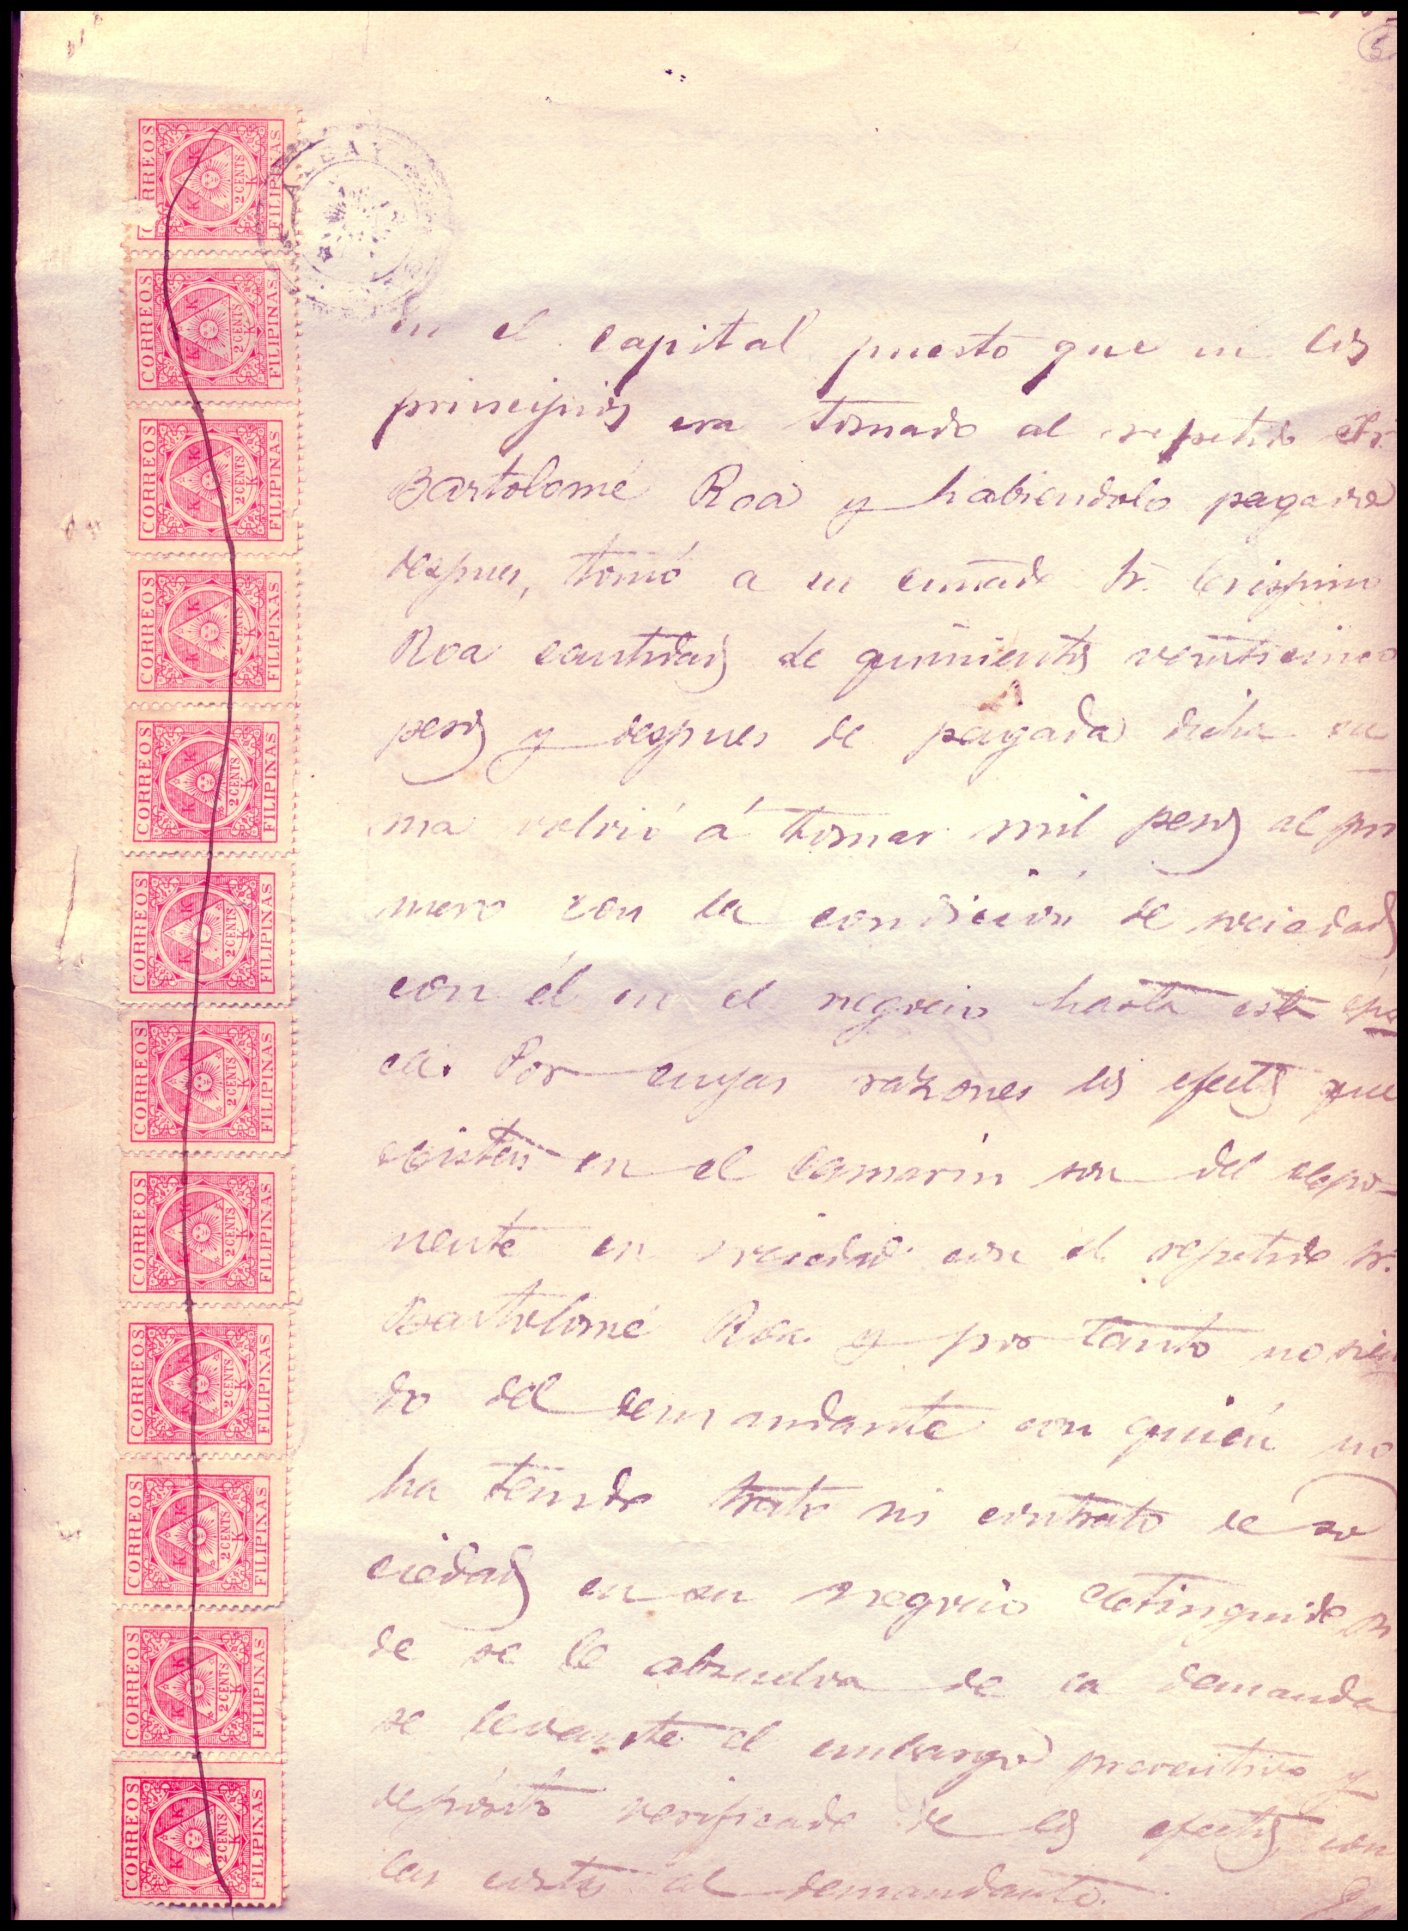 5
ALBAY
CORREOS
FILIPINAS
2 CENTS
K K K
CORREOS
FILIPINAS
2 CENTS
K K K
CORREOS
FILIPINAS
2 CENTS
K K K
CORREOS
FILIPINAS
2 CENTS
K K K
CORREOS
FILIPINAS
2 CENTS
K K K
CORREOS
FILIPINAS
2 CENTS
K K K
CORREOS
FILIPINAS
2 CENTS
K K K
CORREOS
FILIPINAS
2 CENTS
K K K
CORREOS
FILIPINAS
2 CENTS
K K K
CORREOS
FILIPINAS
2 CENTS
K K K
CORREOS
FILIPINAS
2 CENTS
K K K
CORREOS
FILIPINAS
2 CENTS
K K K
en el capital puesto que en los
principios era tomado al repetido Sr.
Bartolomé Roa y habiendolo pagado
despues, tomó a su cuñado Sr. Crispin
Roa cantidad de quinientos veinticinco
pesos y despues de pagada dicha su
ma volvió á tomar mil pesos al pri
mero con la condición de sociedad
con él en el negocio hasta esta épo
ca. Por cuyas razones los efectos que
existen en el camarin son del depo-
nente en sociedad con el repetido Sr.
Bartolomé Roa y por tanto no sien
do del demandante con quién no
ha tenido trato ni contrato de so
ciedad en su negocio
de se le absuelva de la demanda
se levante el embargo preventivo y
depósito verificado de los efectos, con
las costas al demandante.